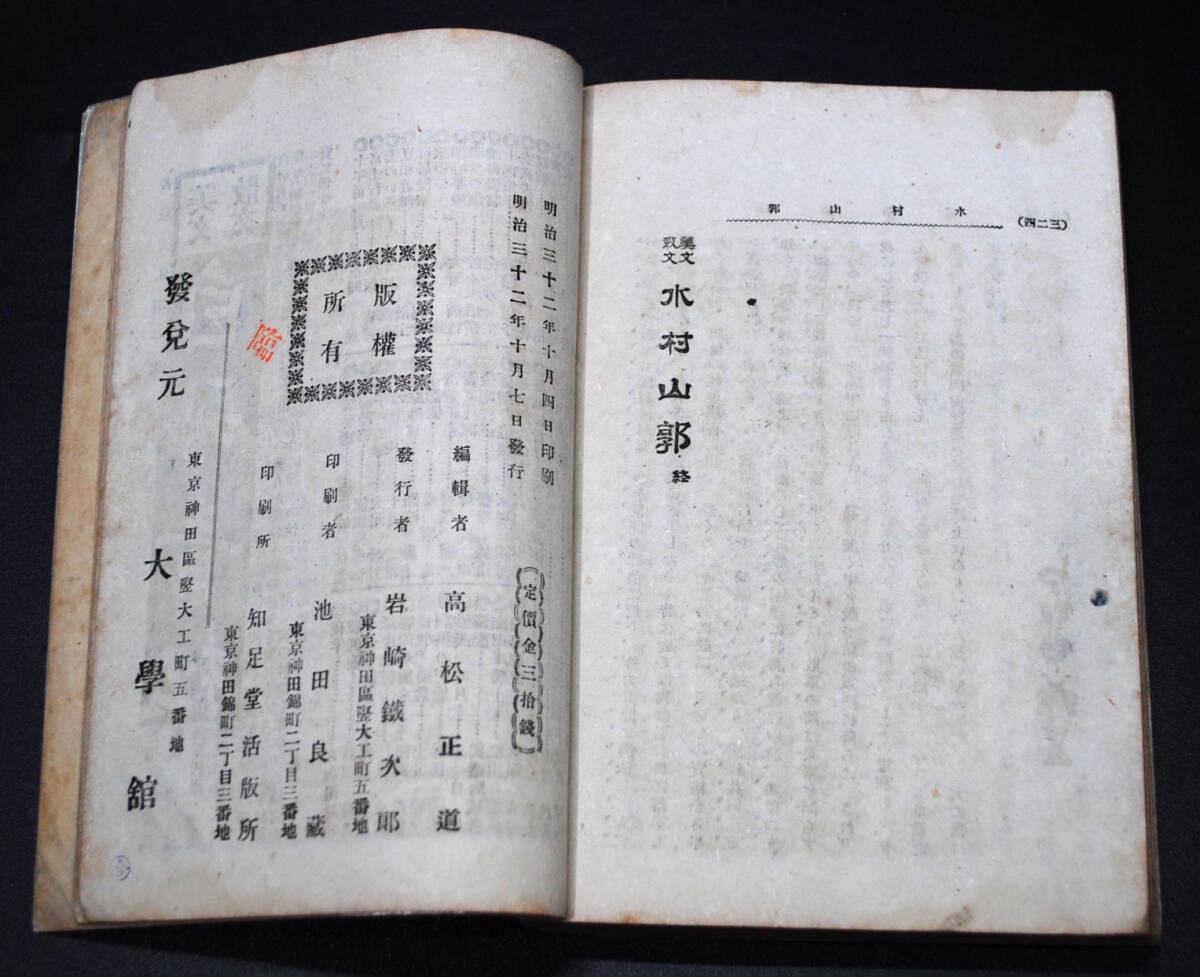 (三二四)
水村山郭
美文
散文
水村山郭 終
明治三十二年十月四日印刷
明治三十二年十月七日發行
定價金三拾錢
版權
所有
編輯者 高松正道
發行者 岩崎鐵次郎
東京神田區竪大工町五番地
印刷者 池田良藏
東京神田錦町二丁目三番地
印刷所 知足堂活版所
東京神田錦町二丁目三番地
東京神田區竪大工町五番地
發兌元 大學舘